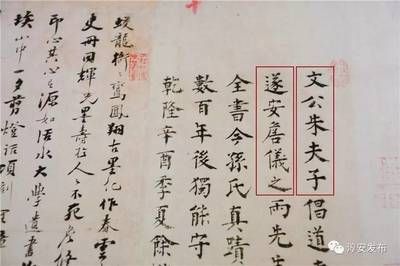 文公朱夫子倡道
遂安詹儀之兩先生
全書今孫氏真蹟
數百年後獨能守
乾隆辛酉季夏餘
龍鸞鳳翔古墨化作春雲
冊同輝光墨壽於人人不死
印心共心心源如活水大學遺書
中一夕剪燈話
淳安发布